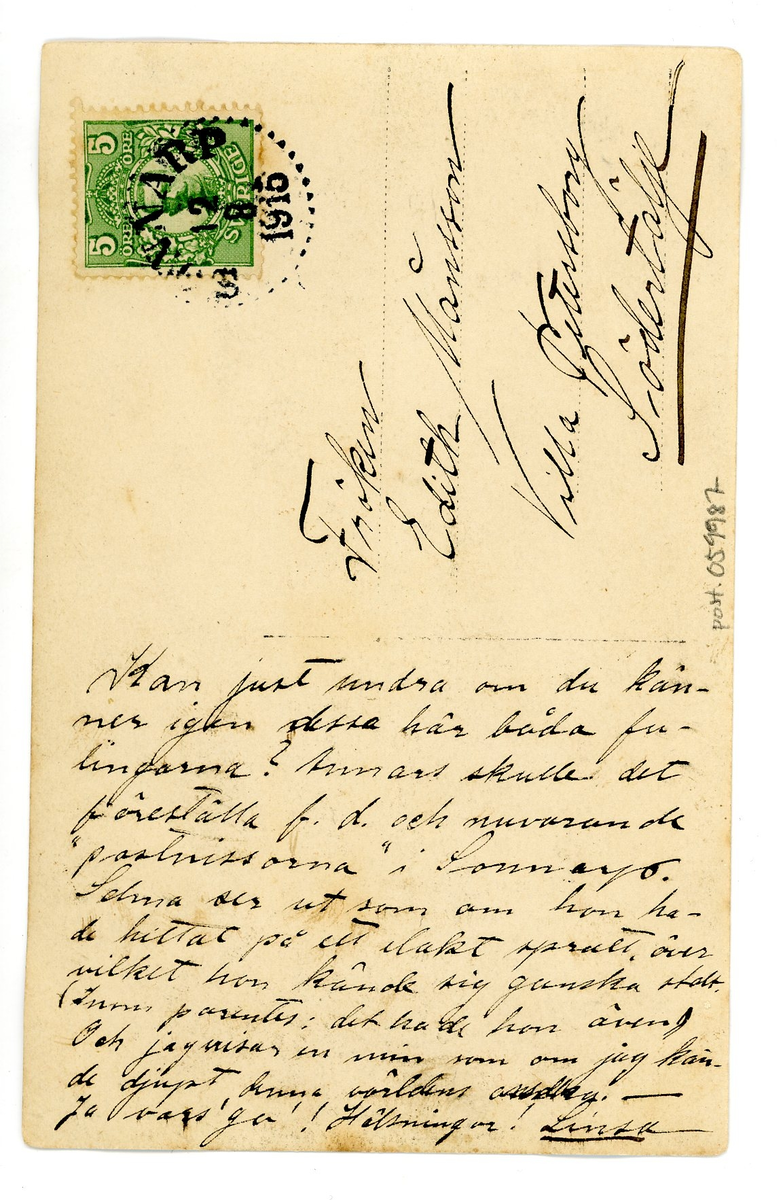 5 ÖRE
5 ÖRE
SVERIGE
12
8
1915
Fröken
Edith Månsson
Villa Petersborg
Södertälje
post. 059987
Kan just undra om du kän-
ner igen dessa här båda fu-
lingarna? Annars skulle det
föreställa f. d. och nuvarande
"postnissarna" i Sonnarp.
Selma ser ut som om hon ha-
de hittat på ett elakt spratt, över
vilket hon kände sig ganska stolt.
(Inom parentes: det hade hon även)
Och jag visar en min som om jag kän-
de djupt denna världens –
Ja vars' go'! Hälsningar! Linsa